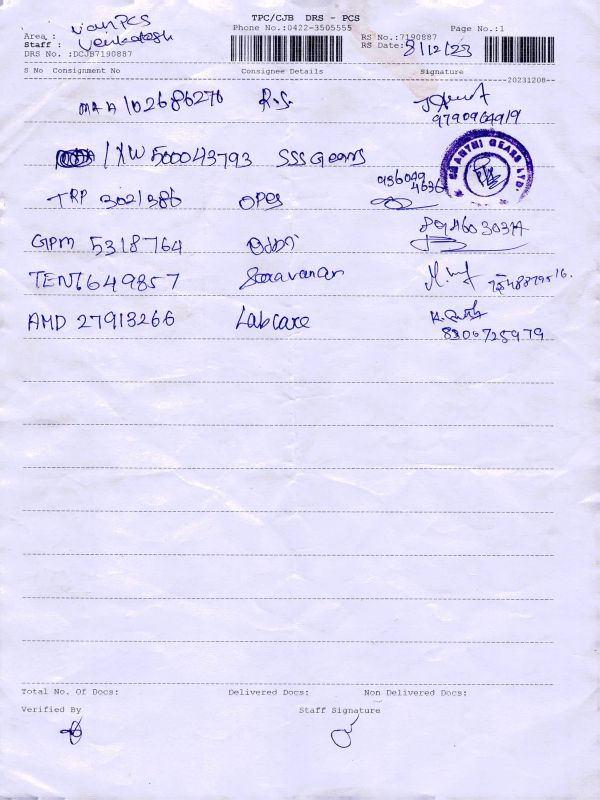 TPC/CJB DRS - PCS
Area : Van PCS Phone No.:0422-3505555 RS No.:7190887 Page No.:1
Staff : Venkatesh RS Date: 8/12/23
DRS No. :DCJB7190887
S No Consignment No Consignee Details Signature
20231208
MAA 102686276 R.S. 9790964919
IXW 500043793 SSS Gears SHANTHI GEARS LTD.
TRP 3021386 OPES 936049 4636
GPM 5318764
TEN 1649857 Saravanan
AMD 27913266 Labcare 8200725979
Total No. Of Docs: Delivered Docs: Non Delivered Docs:
Verified By Staff Signature